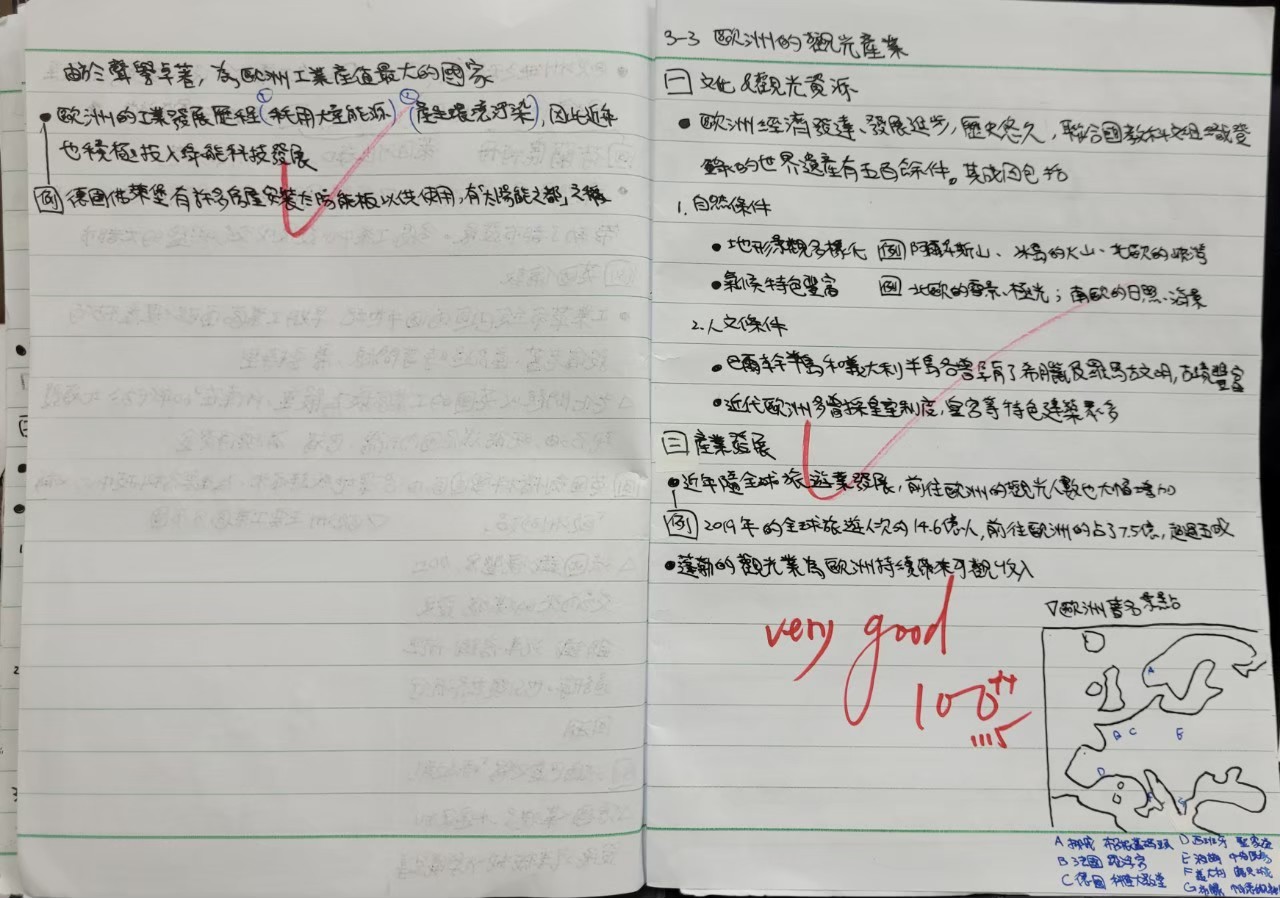 由於聲譽卓著，為歐洲工業產值最大的國家
●歐洲的工業發展歷程(①耗用大量能源)(②產生環境汙染)，因此近年
也積極投入綠能科技發展
例 德國佛萊堡有許多房屋安裝太陽能板以供使用，有「太陽能之都」之稱
3-3 歐洲的觀光產業
一 文化&觀光資源
●歐洲經濟發達、發展進步，歷史悠久，聯合國教科文組織登
錄的世界遺產有五百餘件。其成因包括
1.自然條件
●地形景觀多樣化 例 阿爾卑斯山、冰島的火山、北歐的峽灣
●氣候特色豐富 例 北歐的雪景、極光；南歐的日照、海景
2.人文條件
●巴爾幹半島和義大利半島各曾孕育了希臘及羅馬古文明，古蹟豐富
●近代歐洲多曾採皇室制度，皇宮等特色建築眾多
三 產業發展
●近年隨全球旅遊業發展，前往歐洲的觀光人數也大幅增加
例 2019年的全球旅遊人次約14.6億人，前往歐洲的占了7.5億，超過五成
●蓬勃的觀光業為歐洲持續帶來可觀收入
very good
100++
1115
▽歐洲著名景點
A
B C E
D
A 挪威
D 西班牙 聖家堂
B 法國
E 波蘭
C 德國 科隆大教堂
F 義大利
G 希臘